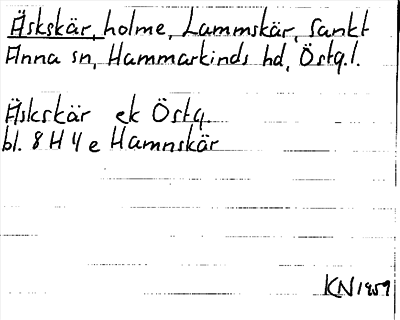 Äskskär, holme, Lammskär, Sankt
Anna sn, Hammarkinds hd, Östg.l.
Äskskär ek Östg.
bl. 8 H 4 e Hamnskär
KN 1959